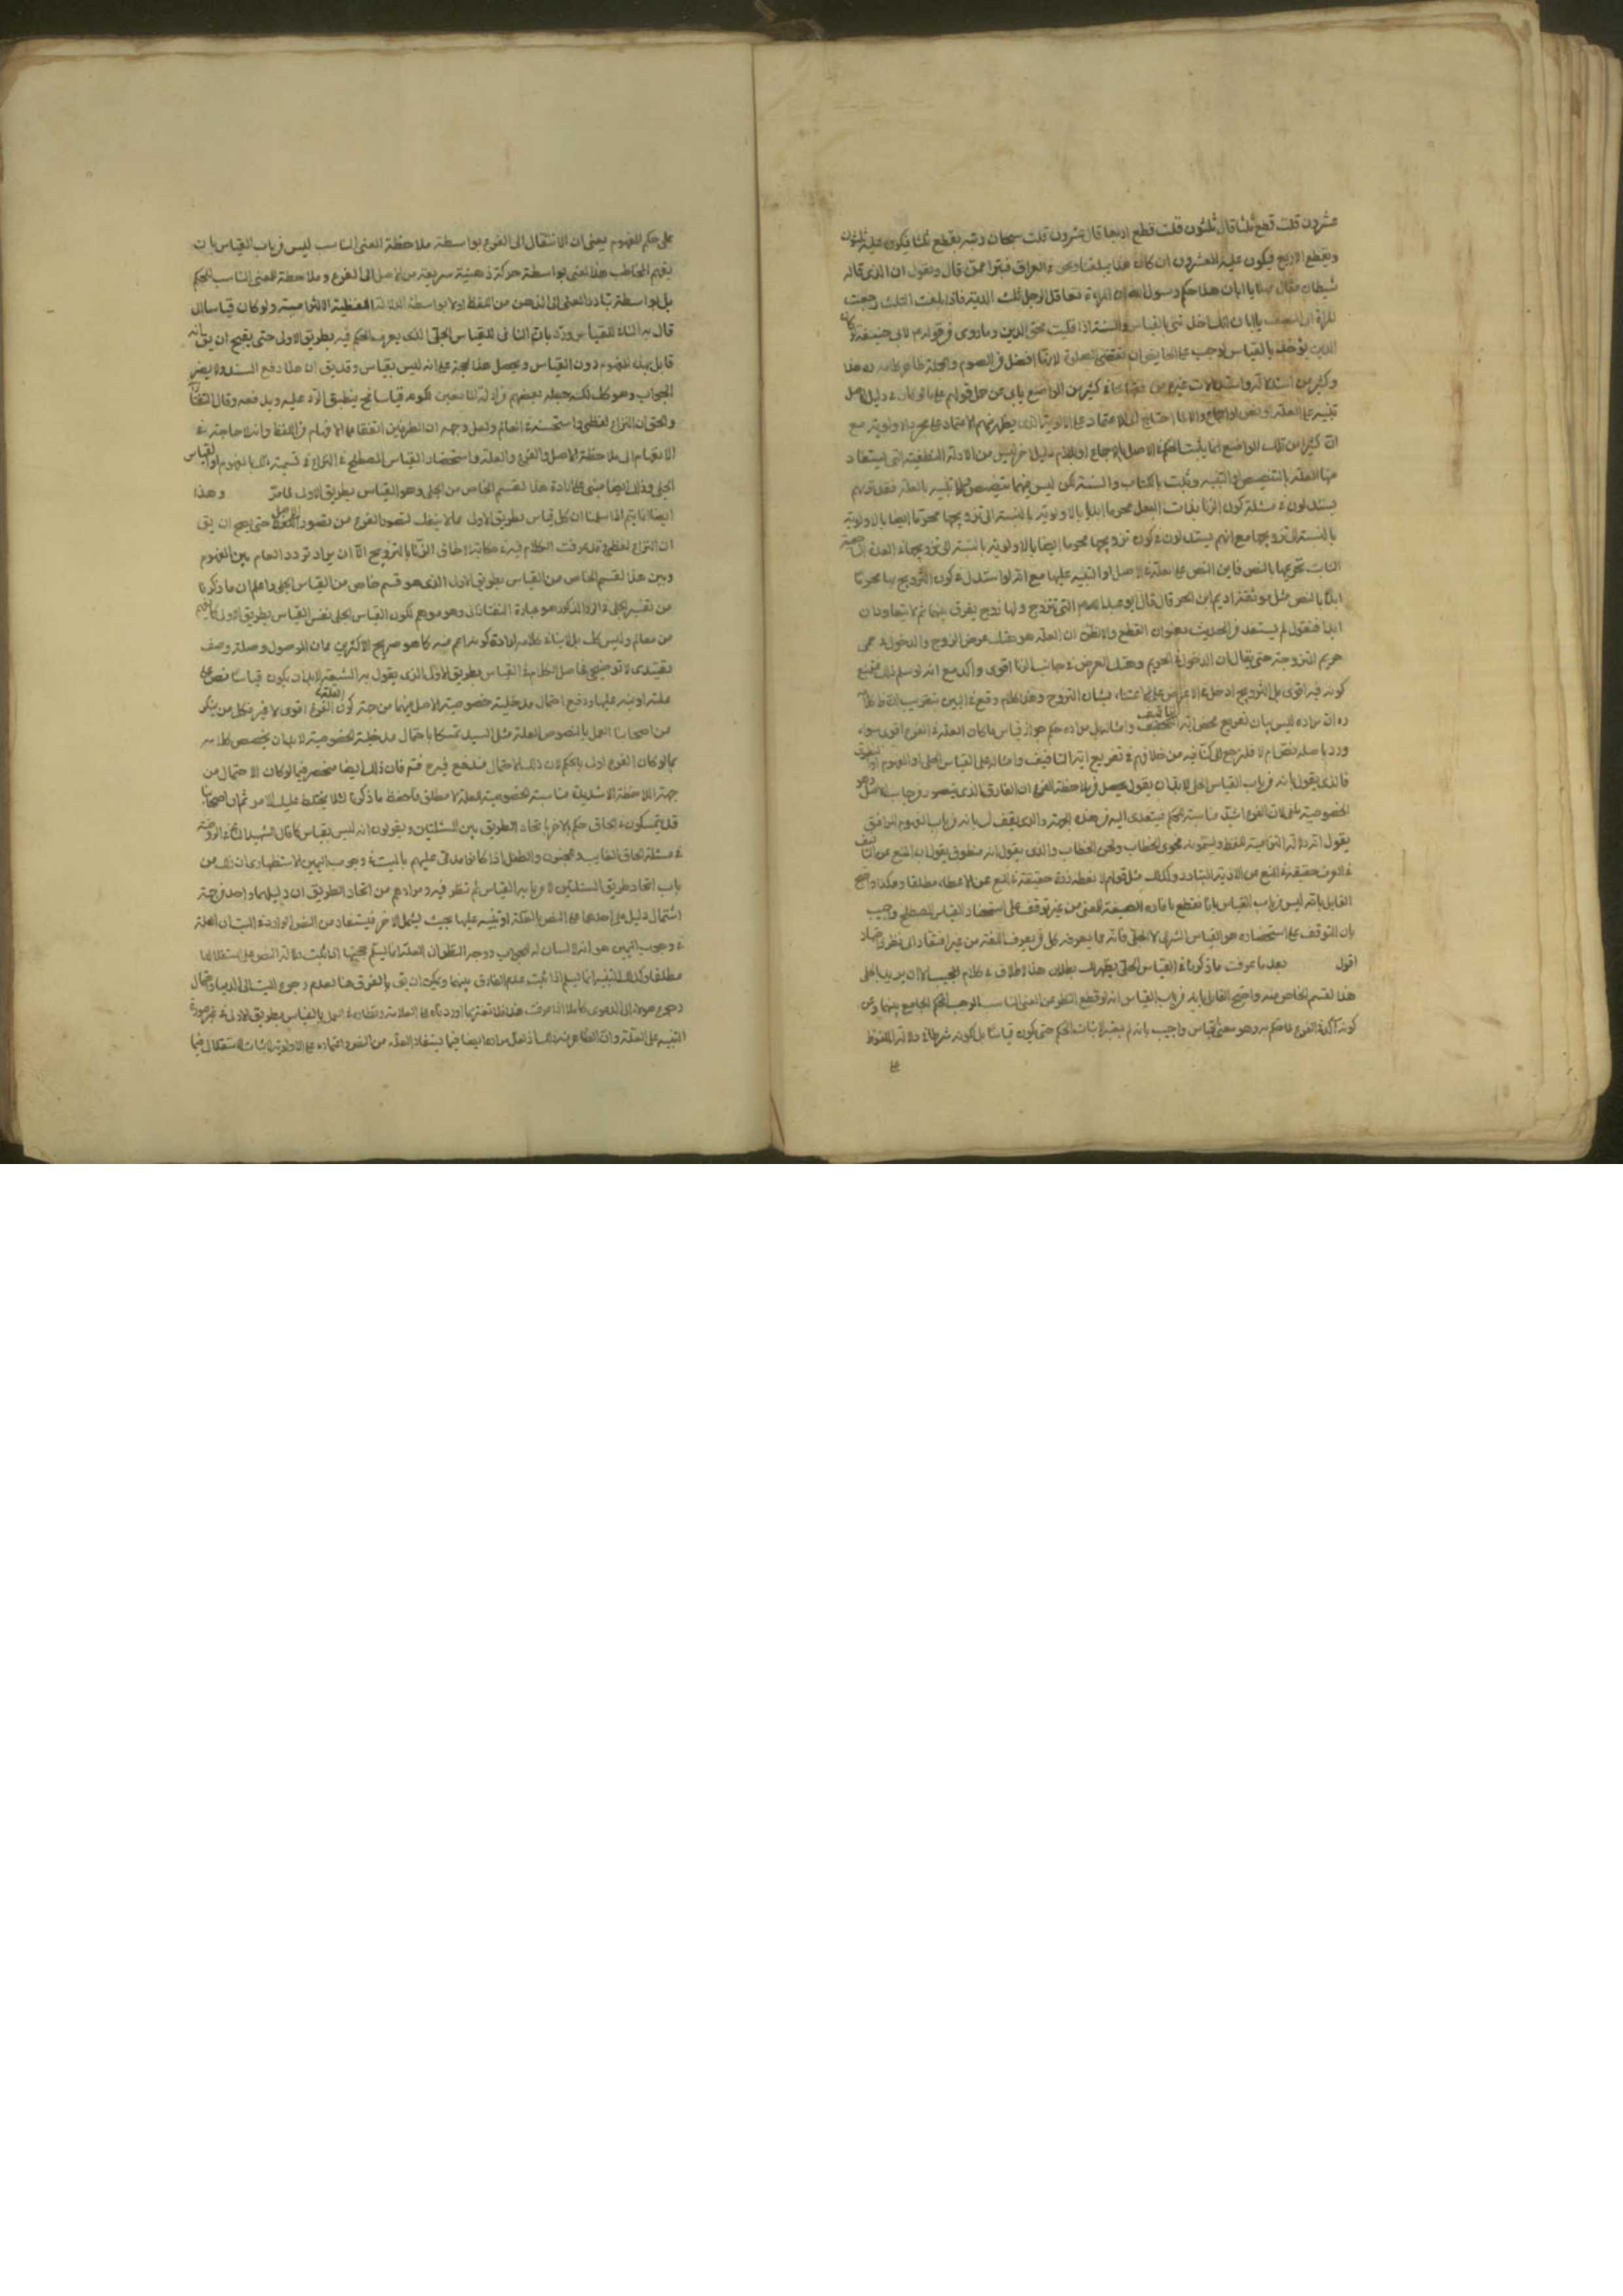 عشرون قلت قطع ثلثا قال ثلثون قلت قطع اربعا قال عشرون قلت سبحان الله يقطع ثلثا فيكون عليه ثلثون
ويقطع الاربع فيكون عليه العشرون ان كان هذا يبلغنا ونحن بالعراق فنبرأ ممن قال ونقول ان الذى قاله
شيطان فقال مهلا يا ابان هذا حكم رسول الله ان المراة تعاقل الرجل ثلث الدية فاذا بلغت الثلث رجعت
المراة الى النصف يا ابان انك اخذتنى بالقياس والسنة اذا قيست محق الدين وما روى فى قوله لابى حنيفة لو كان
الدين يؤخذ بالقياس لوجب على الحايض ان تقضى الصلوة لانها افضل من الصوم وبالجملة ظاهر كلامه ره هذا
وكثير من استدلالاته واستدلالات غيره من فقهائنا فى كثير من المواضع يابى عن حمل قولهم على ما لو كان فى دليل الاصل
تنبيه على العلة او نص او اجماع والا لما احتاج الى الاعتماد على الاولوية الذى يظهر منهم الاعتماد على مجرد الاولوية مع
ان كثيرا من تلك المواضع انما يثبت الحكم فى الاصل بالاجماع او بدليل اخر ليس من الادلة اللفظية التى يستفاد
منها العلة بالتنصيص او التنبيه وثبت بالكتاب والسنة لكن ليس فيهما تنصيص ولا تنبيه بالعلة فقد تريهم
يستدلون فى مسئلة كون الزنا بذات البعل محرما ابدا بالاولوية بالنسبة الى تزويجها محرما ايضا بالاولوية
بالنسبة الى تزويجها مع انهم يستدلون فى كون تزويجها محرما ايضا بالاولوية بالنسبة الى تزويجها فى العدة الرجعية
الثابت تحريمها بالنص فاين النص على العلة فى الاصل او التنبيه عليها مع انه لو استدل فى كون التزويج بها محرما
ابدا بالنص مثل موثقة اديم ابن الحر قال قال ابو عبد الله التى تتزوج ولها زوج يفرق بينهما ثم لا يتعاودان
ابدا فنقول لم يستفد من الحديث بعنوان القطع ولا الظن ان العلة هو هتك عرض الزوج والدخول فى حمى
حريم الزوجة حتى يقال ان الدخول فى الحريم وهتك العرض فى جانب الزنا اقوى واكد مع انه لو سلم ذلك فنمنع
كونه فيه اقوى بل التزويج ادخل فى الاعراض
ره ان مراده ليس بيان تفريع محض اية التافيف وامثاله بل مراده حكم جواز قياس ما كان العلة فى الفرع اقوى سواء
ورد باصله نص ام لا فلنرجع الى ما كنا فيه من خلافهم فى تفريع اية التافيف وامثاله على القياس الجلى او المفهوم او المنطوق
فالذى يقول بانه من باب القياس الجلى لا بد ان يقول يحصل من ملاحظة الفرع ان الفارق الذى يتصور من جانب الاصل وهو
الخصوصية ملغى لان الفرع اشد مناسبة للحكم فيتعدى اليه من هذه الجهة والذى يقول بانه من باب المفهوم الموافق
يقول انه دلالة التزامية للفظ ويسمونه بفحوى الخطاب ولحن الخطاب والذى يقول انه منطوق يقول ان المنع عن التافيف
فى العرف حقيقة فى المنع عن الاذية المتبادر وكذلك مثل قولهم لا تعطه ذرة حقيقة فى المنع عن الاعطاء مطلقا وهكذا واحتج
القايل بانه ليس من باب القياس بانا نقطع بافادة الصيغة للمعنى من غير توقف على استحضار القياس المصطلح واجيب
بان المتوقف على استحضاره هو القياس الشرعى لا الجلى فانه مما يعرفه كل من يعرف اللغة من غير افتقار الى نظر واجتهاد
اقول بعد ما عرفت ما ذكرنا فى القياس الجلى يظهر لك بطلان هذا الاطلاق فى كلام المجيب الا ان يريد بالجلى
هذا القسم الخاص منه واحتج القايل بانه من باب القياس انه لو قطع النظر عن المعنى المناسب الموجب للحكم الجامع بينهما وعن
كونه اكد فى الفرع لما حكم به وهو معنى القياس واجيب بانه لم يعتبر لاثبات الحكم حتى يكون قياسا بل لكونه شرطا فى دلالة الملفوظ
على
على حكم المفهوم يعنى ان الانتقال الى الفرع بواسطة ملاحظة المعنى المناسب ليس من باب القياس بان
يفهم المخاطب هذا المعنى بواسطة حركة ذهنية سريعة من الاصل الى الفرع وملاحظة المعنى المناسب للحكم
بل بواسطة تبادر المعنى الى الذهن من اللفظ اولا بواسطة الدلالة اللفظية الالتزامية ولو كان قياسا لما
قال به النافى للقياس ورد بان النافى للقياس الجلى الذى يعرف الحكم فيه بطريق الاولى حتى يقبح ان يق بانه
قايل بهذا المفهوم دون القياس ويجعل هذا حجة على انه ليس بقياس وقد يق ان هذا دفع السند ولا يضر
الجواب وهو كك لكنه جعله بعضهم من ادلة المانعين لكونه قياسا فح ينطبق الرد عليه ويدفعه وقال التفتازانى
والحق ان النزاع لفظى واستحسنه العالم ولعل وجهه ان الطرفين اتفقا على الافهام من اللفظ وانه لا حاجة فى
الانفهام الى ملاحظة الاصل والفرع والعلة واستحضار القياس المصطلح فى النزاع فى تسمية ذلك بالمفهوم او القياس
الجلى وذلك ايضا مبنى على ارادة هذا القسم الخاص من الجلى وهو القياس بطريق الاولى لما مر وهذا
ايضا انما يتم اذا سلمنا ان كل قياس بطريق الاولى مما لا ينفك تصور الفرع من تصور الاصل حتى يصح ان يق
ان النزاع لفظى وقد عرفت الكلام فيه فى حكاية الحاق الزنا بالتزويج الا ان يراد تردد العام بين المفهوم
وبين هذا القسم الخاص من القياس بطريق الاولى الذى هو قسم خاص من القياس الجلى واعلم ان ما ذكرنا
من تفسير الجلى والرد المذكور هو عبارة التفتازانى وهو موهم لكون القياس الجلى نفس القياس بطريق الاولى كما يفهم
من العالم وليس كك بل لا بناء كلامه ارادة كونه اعم منه كما هو صريح الاكثرين
تقييدى لا توضيحى فحاصل الكلام فى القياس بطريق الاولى الذى يقول به الشيعة لا بد ان يكون قياسا نص على
علته او نبه عليها ودفع احتمال مدخلية خصوصية الاصل فيهما من جهة كون العلة فى الفرع اقوى لا غير فكل من ينكر
من اصحابنا العمل بالمنصوص العلة مثل السيد تمسكا باحتمال مدخلية الخصوصية لا بد ان يخصص كلامه
بما لو كان الفرع اولى بالحكم لان ذلك الاحتمال مندفع فيه
جهة الملاحظة الاشدية مناسبة الخصوصية للعلة لا مطلق فاحفظ ما ذكرنا لئلا يختلط عليك الامر ثم ان اصحابنا
قد يتمسكون فى الحاق حكم بالاخر باتحاد الطريق بين المسئلتين ويقولون انه ليس بقياس كما قال الشهيد الثانى فى الروضة
فى مسئلة الحاق الغايب والمجنون والطفل اذا كانوا مدعى عليهم بالميت فى وجوب اليمين الاستظهارى ان ذلك من
باب اتحاد طريق المسئلتين لا من باب القياس ثم نظر فيه ومرادهم من اتحاد الطريق ان دليلهما واحد من جهة
اشتمال دليل على احدهما على النص بالعلة او تنبيه عليها بحيث يشمل الاخر فيستفاد من النص الوارد فى الميت ان العلة
فى وجوب اليمين هو انه لا لسان له للجواب ووجه النظر ان العلة انما يسلم حجيتها اذا ثبت دلالة النص على استقلالها
مطلقا وكذلك التنبيه انما يسلم اذا ثبت عدم الفارق بينهما ويمكن ان يق بالفرق هنا لعدم رجوع الميت الى الدنيا واحتمال
رجوع هؤلاء الى الدعوى كاملا اذا عرفت هذا فلا تغتر بما اورد
التنبيه على العلة وان الظاهر